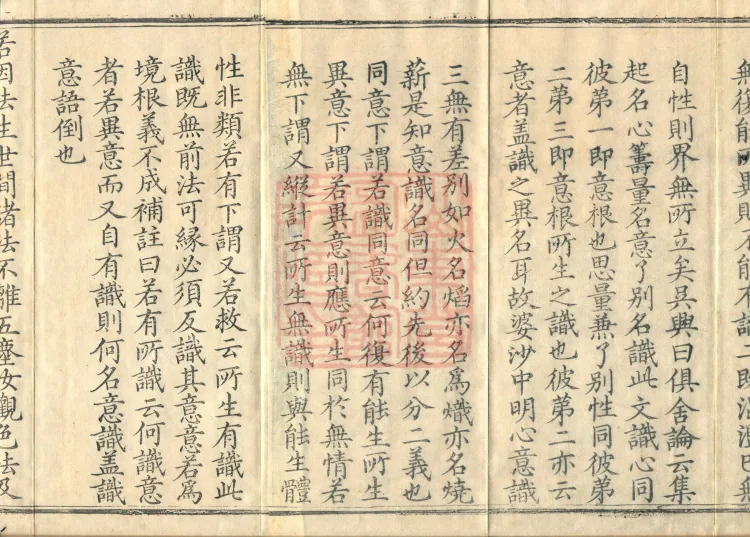 無復能所異則不能不謂二既混濫已無
自性則界無所立矣吳興曰俱舍論云集
起名心籌量名意了別名識此文識心同
彼第一即意根也思量兼了別性同彼第
二第三即意根所生之識也彼第二亦云
意者盖識之異名耳故婆沙中明心意識
三無有差别如火名熖亦名為熾亦名燒
薪是知意識名同但約先後以分二義也
同意下謂若識同意云何復有能生所生
異意下謂若異意則應所生同於無情若
無下謂又縱計云所生無識則與能生體
性非類若有下謂又若救云所生有識此
識既無前法可緣必須反識其意意若為
境根義不成補註曰若有所識云何識意
者若異意而又自有識則何名意識盖識
意語倒也
若因法生世間諸法不離五塵汝觀色法及